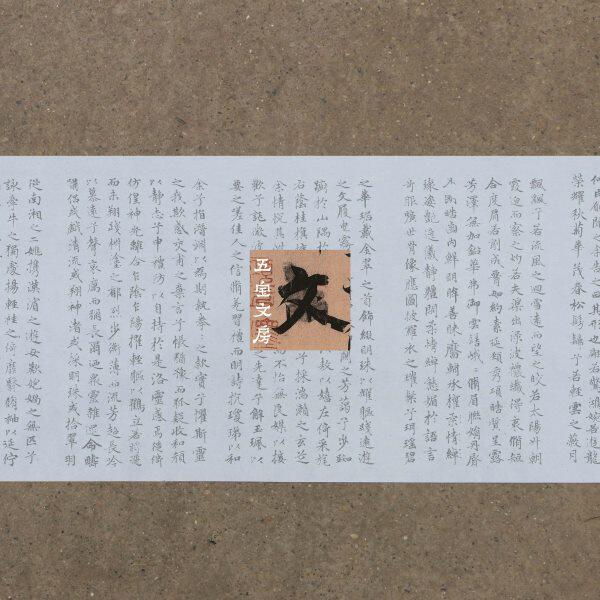 余告之曰其形也翩若驚鴻婉若遊龍
榮耀秋菊華茂春松髣髴兮若輕雲之蔽月
飄飄兮若流風之迴雪遠而望之皎若太陽升朝
霞迫而察之灼若芙渠出淥波襛纖得衷脩短
合度肩若削成腰如約素延頸秀項皓質呈露
芳澤無加鉛華弗御雲髻峨峨脩眉聯娟丹脣
外朗皓齒內鮮明眸善睞靨輔承權
瓌姿艷逸儀靜體閑柔情綽態媚於語言
奇服曠世骨像應圖披羅衣之璀粲兮珥瑤碧
之華琚戴金翠之首飾綴明珠以耀軀踐遠遊
之文履曳霧 蘭之芳藹兮步踟
躕於山隅於 以嬉左倚采旄
右蔭桂旗攘 兮採湍瀨之玄芝
余情悅其淑 不怡無良媒以接
歡兮託微波 之先達兮解玉珮以
要之嗟佳人之信脩羌習禮而明詩抗瓊珶以和
余兮指潛淵以為期執拳拳之款實兮懼斯靈
之我欺感交甫之棄言兮悵猶豫而狐疑收和顏
以靜志兮申禮防以自持於是洛靈感焉徙倚
彷徨神光離合乍陰乍陽擢輕軀以鶴立若將飛
而未翔踐椒塗之郁烈步蘅薄而流芳超長吟
以慕遠兮聲哀厲而彌長爾迺眾靈雜遝命疇
嘯侶或戲清流或翔神渚或採明珠或拾翠羽
從南湘之二妃攜漢濱之遊女歎匏媧之無匹兮
詠牽牛之獨處揚輕袿之猗靡翳脩袖以延佇
五皇文房
文